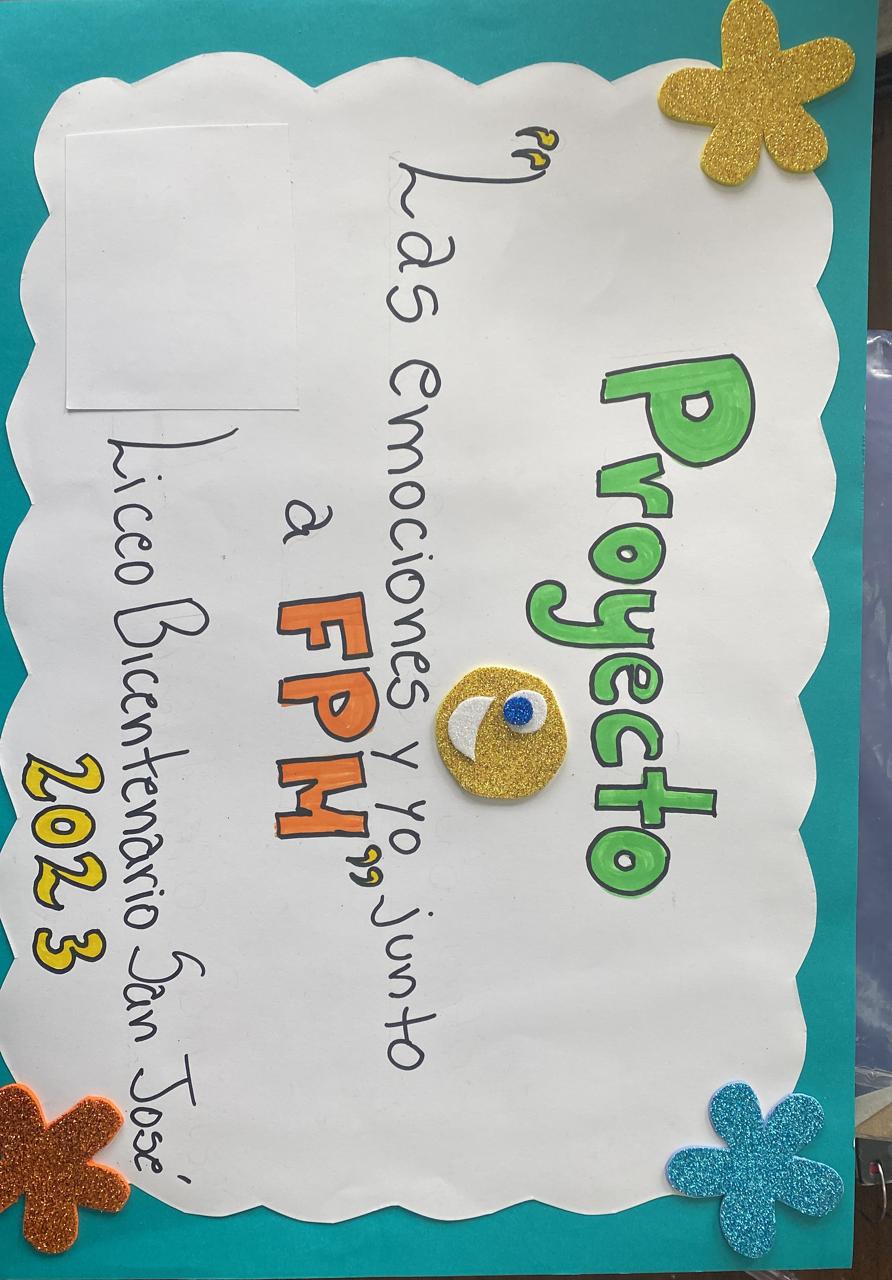 Proyecto
"Las emociones y yo, junto
a FPM"
Liceo Bicentenario San José
2023